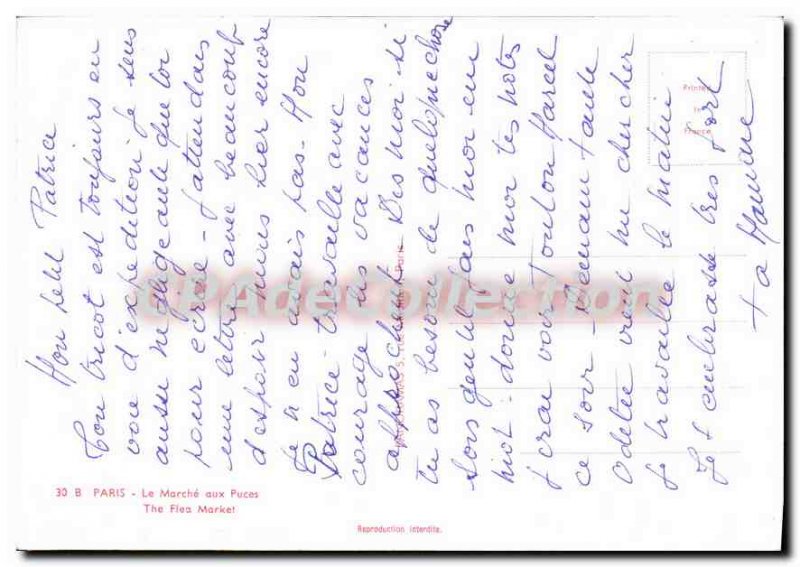 Mon petit Patrice
Ton tricot est toujours en
voie d'expédition je suis
aussi négligeante que toi
pour écrire - j'attendais
une lettre avec beaucoup
d'espoir mais hier encore
je n'en avais pas - Mon
Patrice travaille avec
courage les vacances
approchent Dis moi si
tu as besoin de quelque chose
sois gentil fais moi un
mot - donne moi tes notes
J'irai voir Tonton Marcel
ce soir - Maman
Odette vient me chercher
je travaille le matin
Je t'embrasse très fort
ta Maman
30 B PARIS - Le Marché aux Puces
The Flea Market
Reproduction interdite.
Printed
in
France
Paris
CPADeCollection